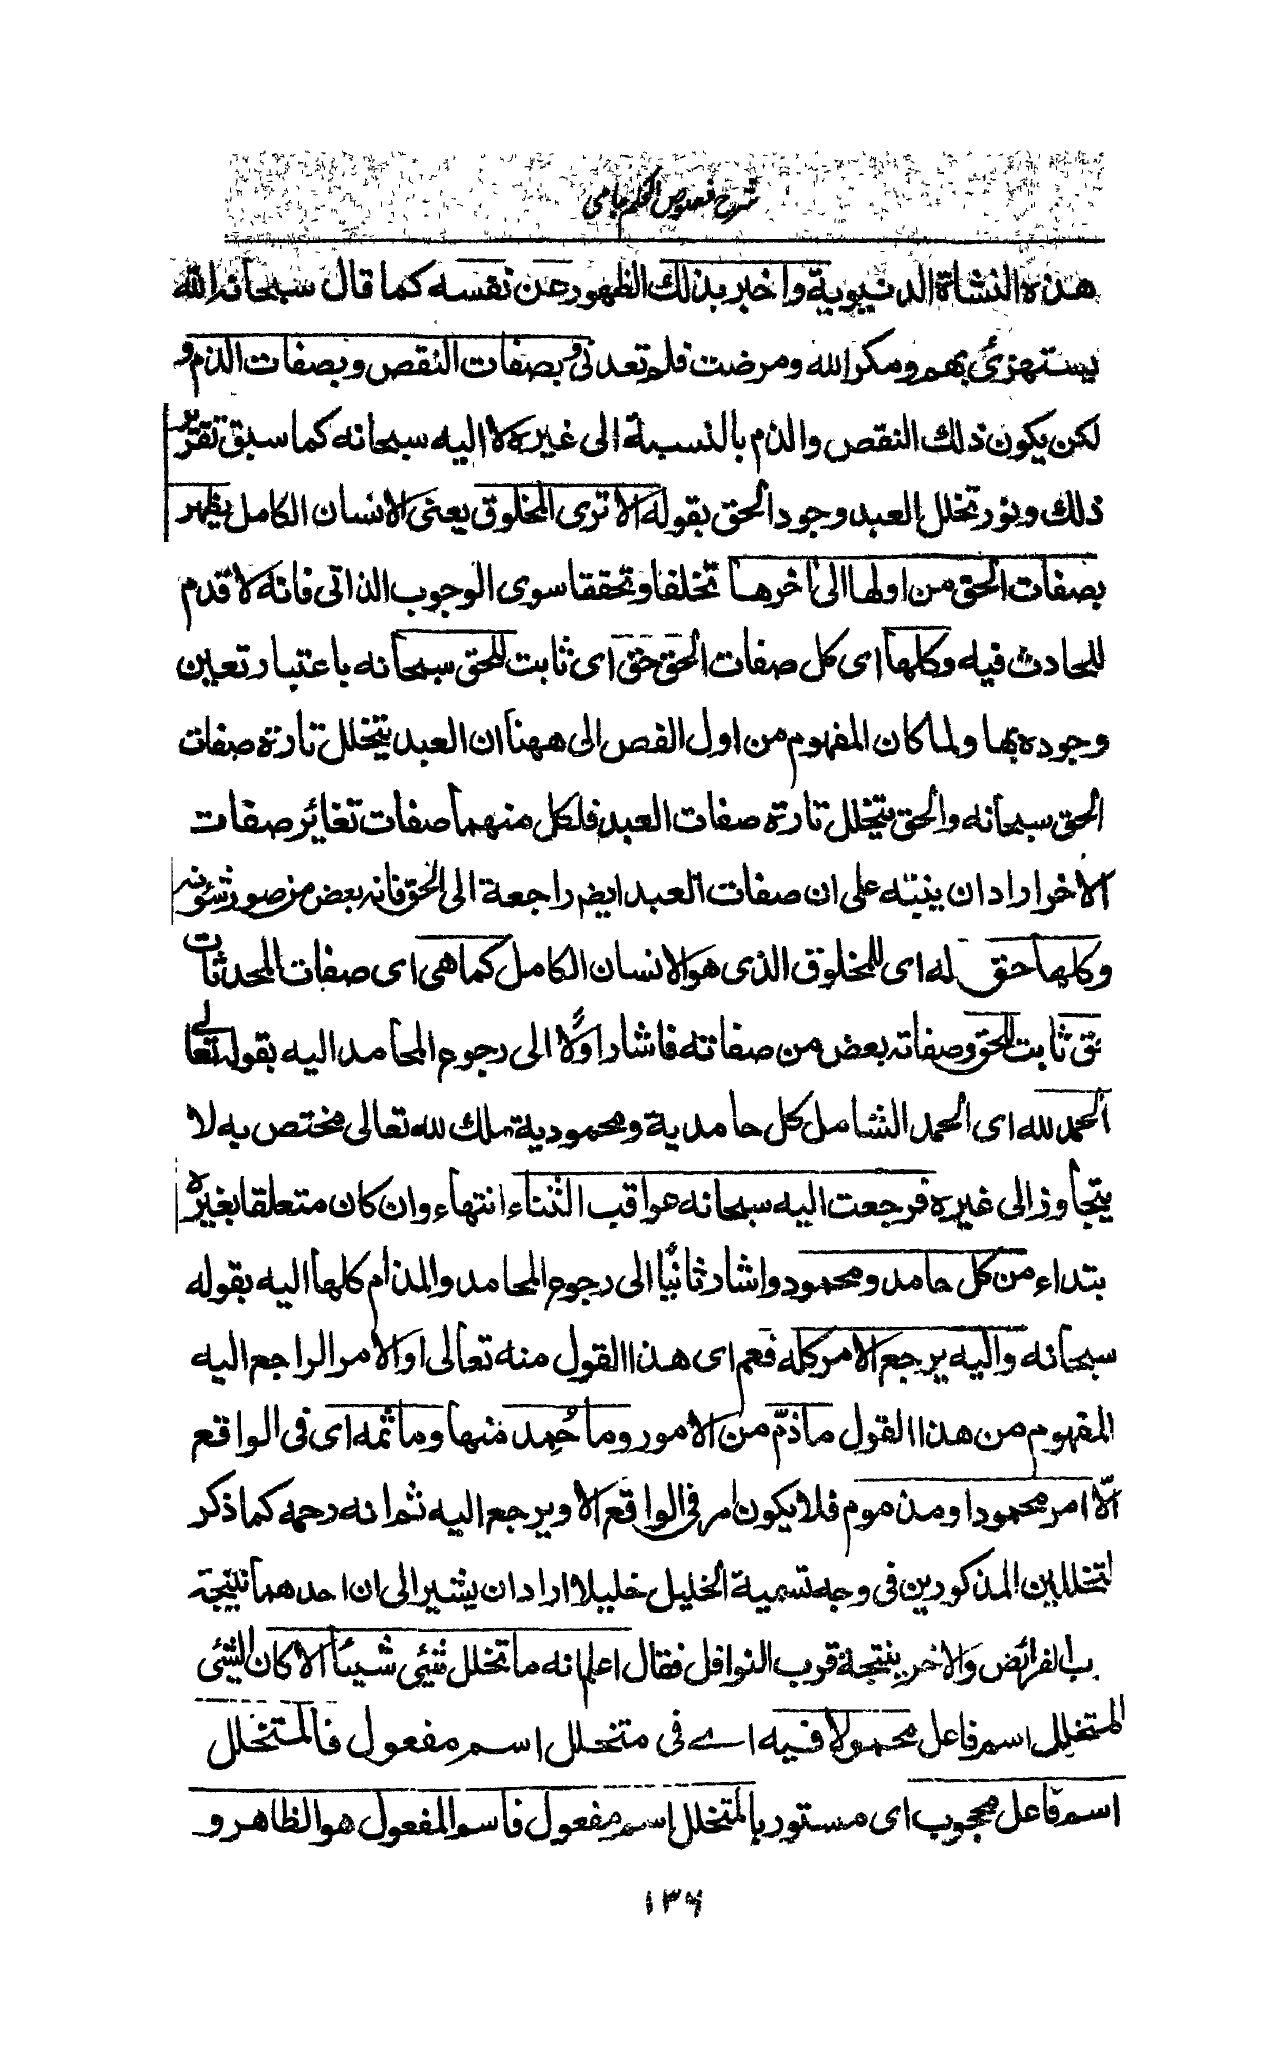 شرح فصوص الحكم جامى
هذه النشاة الدنيوية واخبر بذلك الظهور عن نفسه كما قال سبحانه الله
يستهزئ بهم ومكر الله ومرضت فلم تعدنى وبصفات النقص وبصفات الذم و
لكن يكون ذلك النقص والذم بالنسبة الى غيره لا اليه سبحانه كما سبق تقرير
ذلك ونور تخلل العبد وجود الحق بقوله الا ترى المخلوق يعنى الانسان الكامل يظهر
بصفات الحق من اولها الى اخرها تخلقا وتحققا سوى الوجوب الذاتى فانه لا قدم
للحادث فيه وكلها اى كل صفات الحق حق اى ثابت للحق سبحانه باعتبار تعين
وجوده بها ولما كان المفهوم من اول الفص الى ههنا ان العبد يتخلل تارة صفات
الحق سبحانه والحق يتخلل تارة صفات العبد فلكل منهما صفات تغائر صفات
الاخر اراد ان ينبّه على ان صفات العبد ايض راجعة الى الحق فانه بعض من صور شئونه
وكلها حق له اى للمخلوق الذى هو الانسان الكامل كما هى اى صفات المحدثات
حق ثابت للحق وصفاته بعض من صفاته فاشار اولًا الى رجوع المحامد اليه بقوله تعالى
الحمد لله اى الحمد الشامل كل حامدية ومحمودية ملك لله تعالى مختص به لا
يتجاوز الى غيره فرجعت اليه سبحانه عواقب الثناء انتهاء وان كان متعلقا بغيره
بتداء من كل حامد ومحمود واشار ثانيًا الى رجوع المحامد والمذام كلها اليه بقوله
سبحانه واليه يرجع الامر كله فعم اى هذا القول منه تعالى او الامر الراجع اليه
المفهوم من هذا القول ما ذمّ من الامور وما حُمِد منها وما ثمه اى فى الواقع
الّا امر محمود او مذموم فلا يكون امر فى الواقع الا ويرجع اليه ثم انه رحمه كما ذكر
لتخللين المذكورين فى وجه تسمية الخليل خليلا اراد ان يشير الى ان احدهما نتيجة
ب الفرائض والاخر ينتجة قرب النوافل فقال اعلم انه ما تخلل شئى شيئا الا كان الشئى
المتخلِل اسم فاعل محمولا فيه اے فى متخلل اسم مفعول فالمتخلل
اسم فاعل محجوب اى مستور بالمتخلل اسم مفعول فاسم المفعول هو الظاهر و
۱۳۶